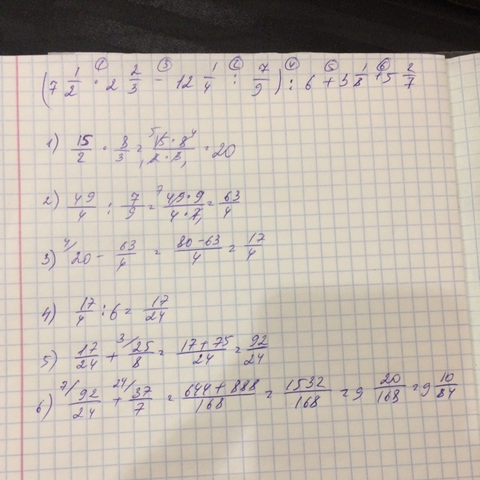 (7 1/2 · 2 2/3 - 12 1/4 : 7/9) : 6 + 3 1/8 + 5 2/7
1) 15/2 · 8/3 = 15·8/2·3 = 20
2) 49/4 : 7/9 = 49·9/4·7 = 63/4
3) 20 - 63/4 = 80-63/4 = 17/4
4) 17/4 : 6 = 17/24
5) 17/24 + 25/8 = 17+75/24 = 92/24
6) 92/24 + 37/7 = 644+888/168 = 1532/168 = 9 20/168 = 9 10/84